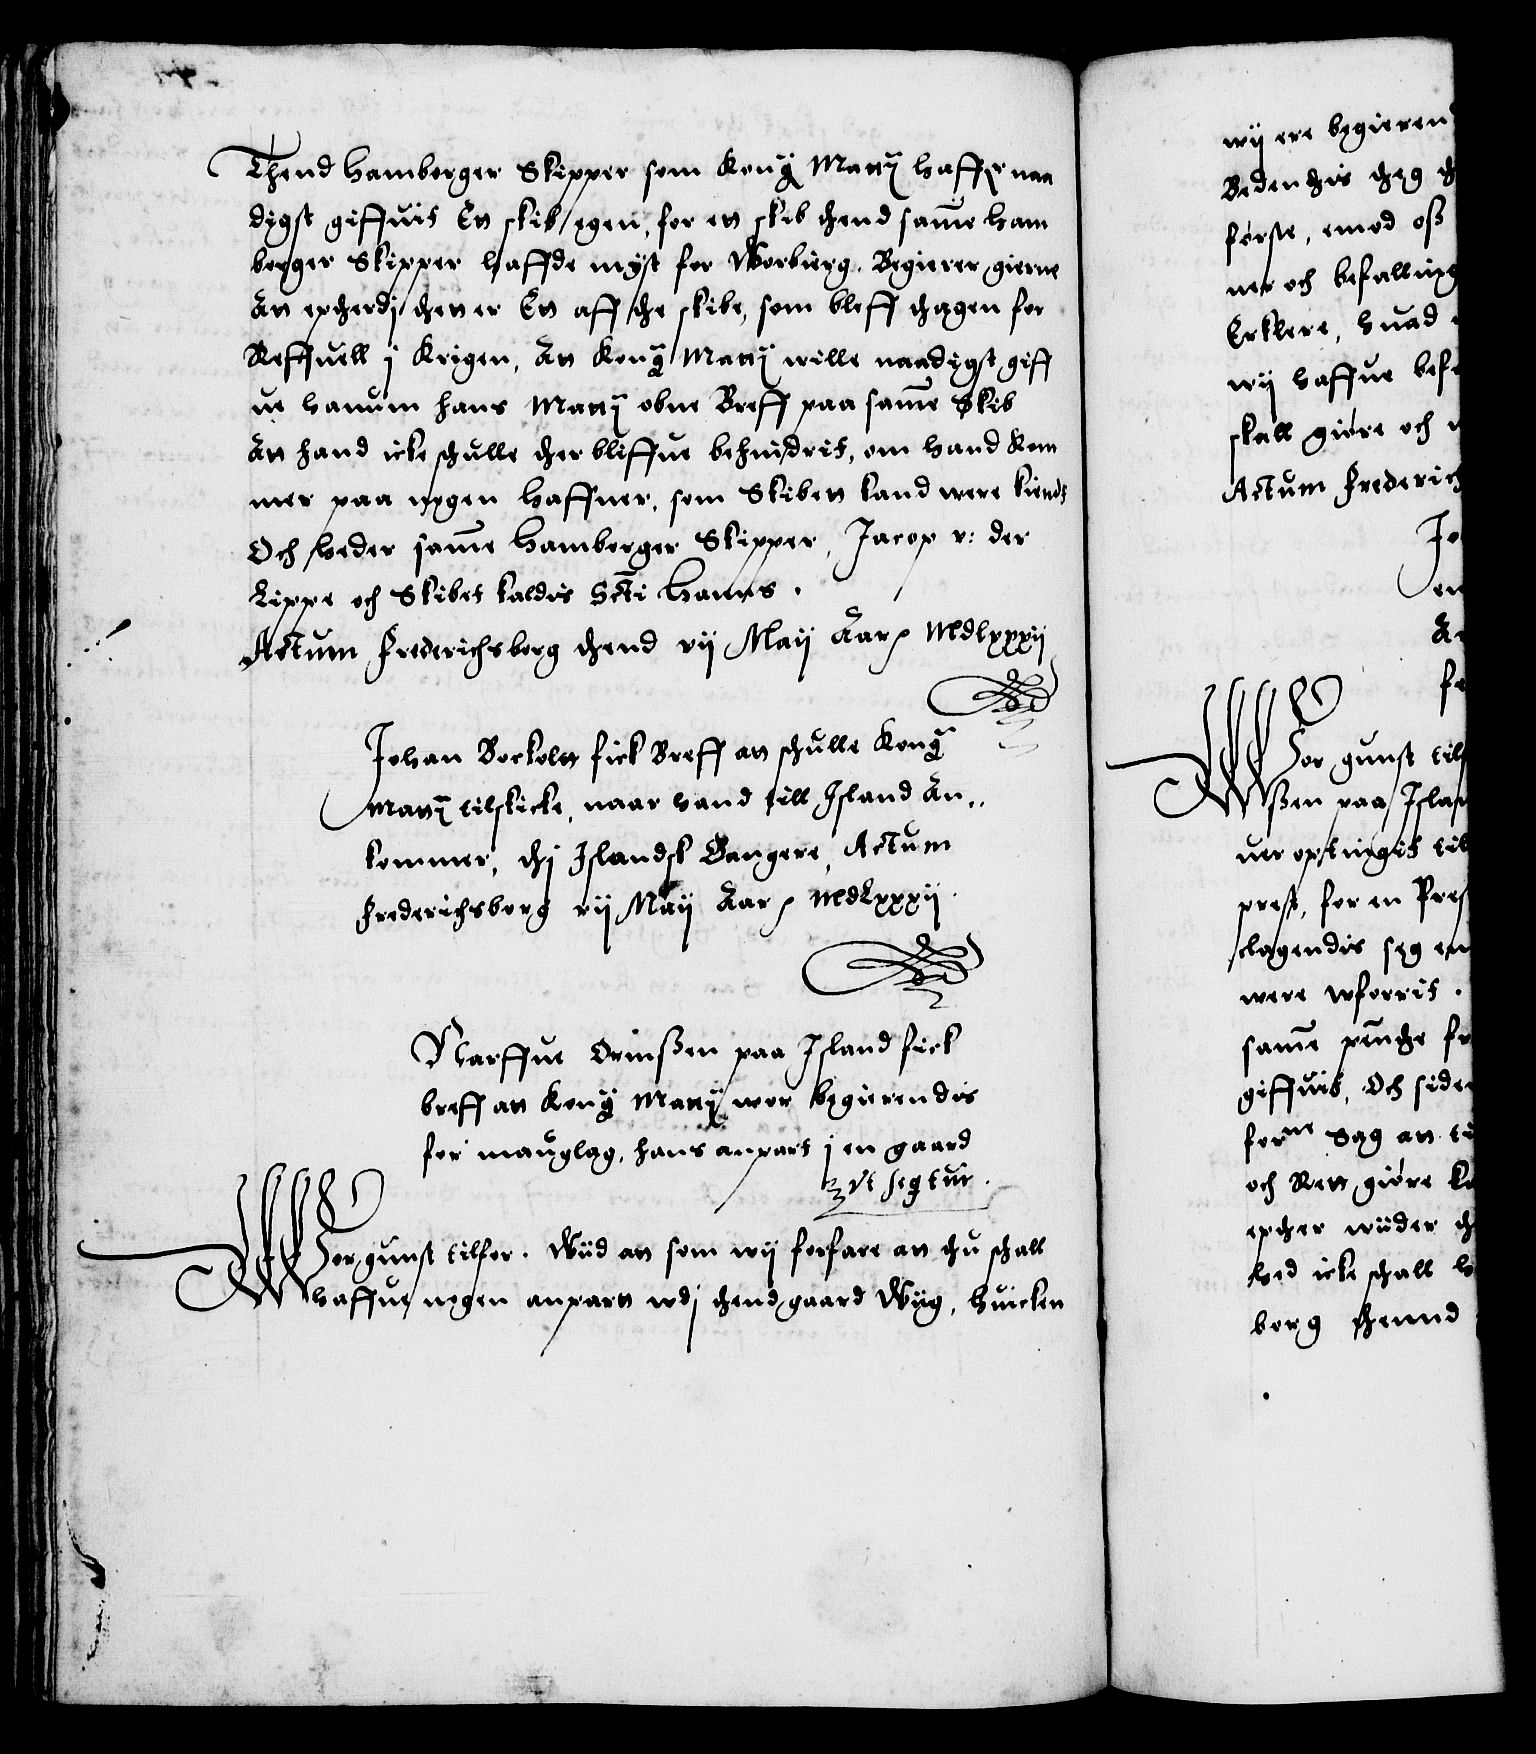 Thend Hamborger Skipper som Kong Matt haffr naa
digst giffuit En skib igen, for en skib thend same Ham
borger Skipper haffde myst for Worbierg. Begierer gierne
An epther thj thett er En aff the skibe, som bleff thagen for
Reffuell j Krigen, An Kong Matt wille naadigst giff
ue hanum hans Matt obne Breff paa same Skib
An hand icke schulle ther bliffue behindrit, om hand kom
mer paa nogen haffner, som Skibett kand were kiendt
Och heder same Hamborger Skipper, Jacop v: der
Lippe och Skibet kaldis Scti Hanns.
Actum Frederichsborg thend vij Maij Aar MdLxxxij
Johan Bockolt fick Breff an schulle Kong
Matt tilskicke, naar hand till Island An..
kommer, thj Islandsk Gangere, Actum
Frederichsborg vij Maij Aar MdLxxxij.
Narffue Ormßen paa Island fick
breff an Kong Matt wor begierendis
for mauglag, hans anpart j en gaard
Vt seqtur.
Wor gunst tilfor. Wiid an som wij forfare an thu schall
haffue nogen anpart wdj thend gaard Wiig, huicken
wij ere begieren
Bedendis theg th
første, emod oß
ner och befalling
Erklere, huad
wij haffue befa
skall giøre och
Actum Frederich
Jo
en
An
fe
Wor gunst tilf
ßen paa Islan
uer opstingit til
prest, for en Pres
clagendis seg en
were wforrit.
same penge fr
giffuit, Och siden
forne Sag an ti
och Rett giøre k
epther wiider th
hed icke schall
borg thennd